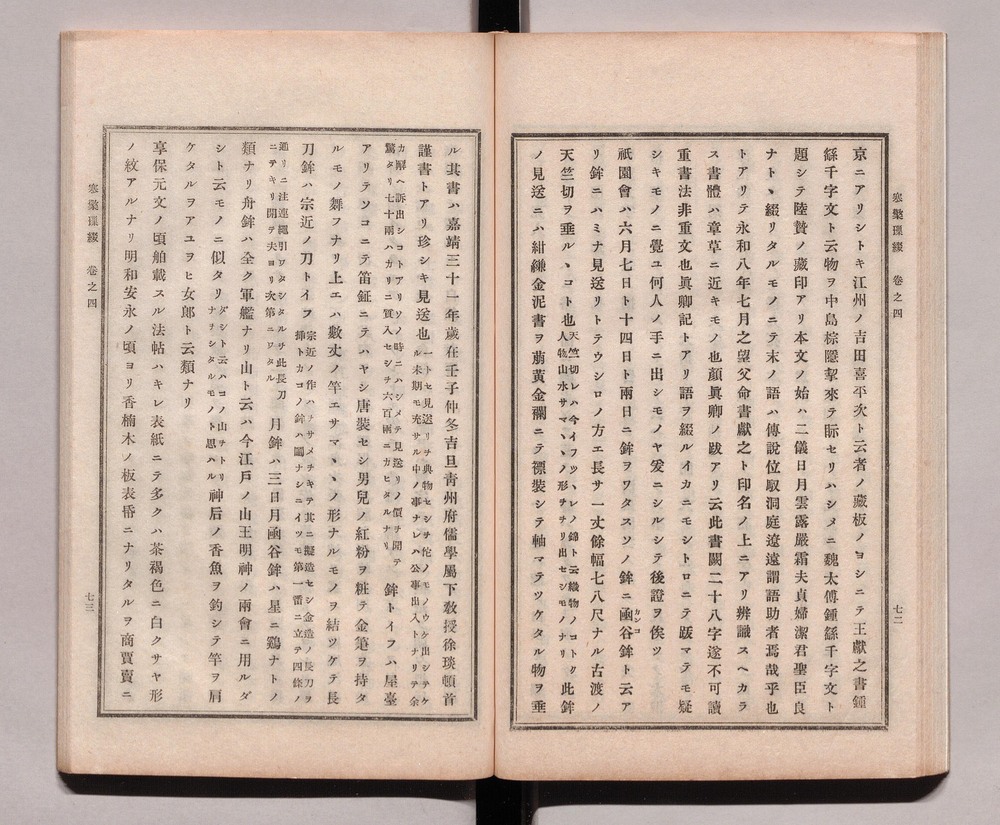 寒檠璅綴　卷之四　七二
京ニアリシトキ江州ノ吉田喜平次ト云者ノ藏板ノヨシニテ王獻之書鍾
繇千字文ト云物ヲ中島棕隱挈來テ眎セリハシメニ魏太傅鍾繇千字文ト
題シテ陸贄ノ藏印アリ本文ノ始ハ二儀日月雲露嚴霜夫貞婦潔君聖臣良
ナトヽ綴リタルモノニテ末ノ語ハ傳說位馭洞庭遼遠謂語助者焉哉乎也
トアリテ永和八年七月之望父命書獻之ト印名ノ上ニアリ辨識スヘカラ
ス書體ハ章草ニ近キモノ也顏眞卿ノ跋アリ云此書闕二十八字遂不可讀
重書法非重文也眞卿記トアリ語ヲ綴ルイカニモシトロニテ跋マテモ疑
シキモノニ覺ユ何人ノ手ニ出シモノヤ爰ニシルシテ後證ヲ俟ツ
祇園會ハ六月七日ト十四日ト兩日ニ鉾ヲワタスソノ鉾ニ凾谷鉾ト云ア
リ鉾ニハミナ見送リトテウシロノ方エ長サ一丈餘幅七八尺ナル古渡ノ
天竺切ヲ垂ルヽコト也天竺切レハ今イフツヽレノ錦ト云織物ノコトク人物山水サマ〱ノ形ヲヲリ出セシモノナリ此鉾
ノ見送ニハ紺縑金泥書ヲ萠黃金襴ニテ褾裝シテ軸マテツケタル物ヲ垂
ル其書ハ嘉靖三十一年歲在壬子仲冬吉旦靑州府儒學屬下敎授徐琰頓首
謹書トアリ珍シキ見送也一トセ見送リヲ典物セシヲ佗ノモノウケ出シテケル未期モ充サル中ノ事ナレハ公事出入トナリテ余
カ廨ヘ訴出シコトアリソノ時ニハシメテ見送リノ價ヲ聞テ驚タリ七十兩ハカリニ質入セシヲ六百兩ニカヒタルナリ　鉾トイフハ屋臺
アリテソコニテ笛鉦ニテハヤシ唐裝セシ男兒ノ紅粉ヲ粧テ金箑ヲ持タ
ルモノ舞フナリ上エハ數丈ノ竿エサマヽヽノ形ナルモノヲ結ツケテ長
刀鉾ハ宗近ノ刀トイフ宗近ノ作ハヲサメヲキテ其ニ擬造セシ金造ノ長刀ヲ挿トカコノ鉾ハ鬮ナシニイツモ第一番ニ立テ四條ノ
通リニ注連繩引ワタシタルヲ此長刀ニテキリ開テ夫ヨリ次第ニワタル　月鉾ハ三日月凾谷鉾ハ星ニ鷄ナトノ
類ナリ舟鉾ハ全ク軍艦ナリ山ト云ハ今江戶ノ山王明神ノ兩會ニ用ルダ
シト云モノニ似タリダシト云ハコノ山ヲトリナヲシタルモノト思ハル神后ノ香魚ヲ釣シテ竿ヲ肩
ケタルヲアユヲヒ女郞ト云類ナリ
享保元文ノ頃舶載スル法帖ハキレ表紙ニテ多クハ茶褐色ニ白クサヤ形
ノ紋アルナリ明和安永ノ頃ヨリ香楠木ノ板表帋ニナリタルヲ商賈賣ニ
寒檠璅綴　卷之四　七三